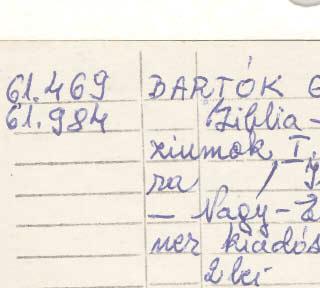 61.469 BARTÓK
61.984 Biblia-
ziumok I.
ra
- Nagy-
ner kiadós
2 kö